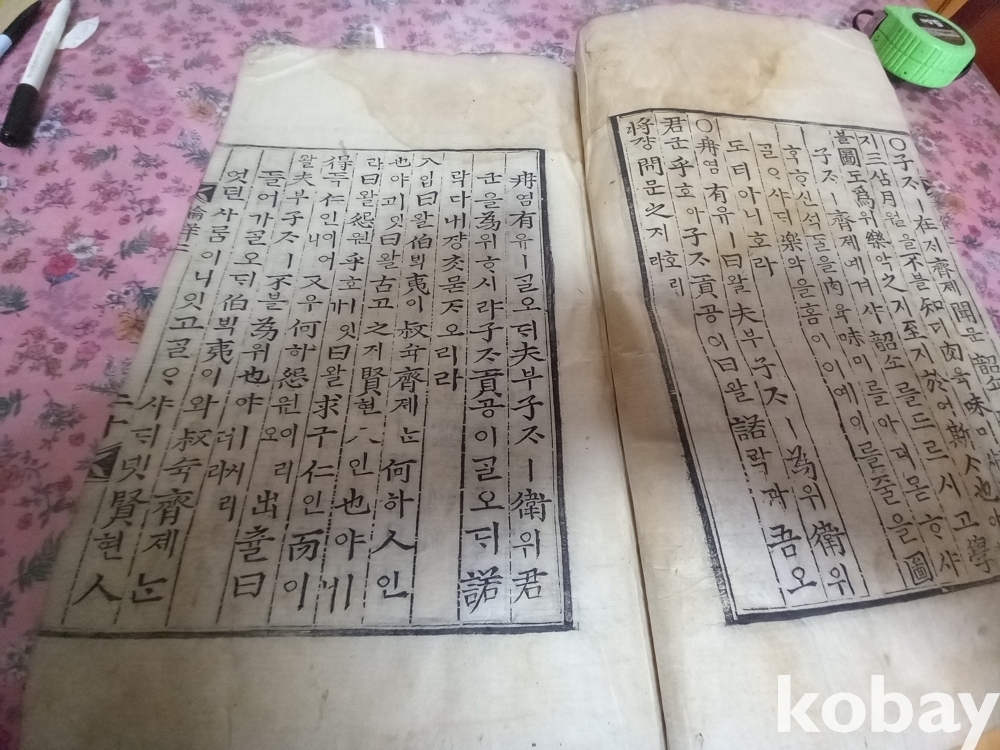 ○子ᄌᆞㅣ在ᄌᆡ齊졔聞문韶쇼
三삼月월을不블知디肉육味미
블圖도爲위樂악之지至지於어斯ᄉᆞ也야
子ᄌᆞㅣ齊졔예겨샤韶쇼를드르시고學
ᄒᆞ신석ᄃᆞᆯ을肉육味미를아디몯ᄒᆞ샤
ᄀᆞᆯᄋᆞ샤ᄃᆡ樂악을홈이이예이를줄을圖
도티아니호라
○冉염有유ㅣ曰왈夫부子ᄌᆞㅣ爲위衛위
君군乎호아子ᄌᆞ貢공이曰왈諾락다吾오
將쟝問문之지호리라
冉염有유ㅣᄀᆞᆯ오ᄃᆡ夫부子ᄌᆞㅣ衛위君
군을爲위ᄒᆞ시랴子ᄌᆞ貢공이ᄀᆞᆯ오ᄃᆡ諾
락다내쟝ᄎᆞᆺ묻ᄌᆞ오리라
入입曰왈伯ᄇᆡᆨ夷이叔슉齊졔ᄂᆞᆫ何하人인
也야ㅣ잇고曰왈古고之지賢현人인也야ㅣ니
라曰왈怨원乎호ㅣ잇가曰왈求구仁인而이
得득仁인이어니又우何하怨원이리오出츌曰
왈夫부子ᄌᆞㅣ不블爲위也야
들어가ᄀᆞᆯ오ᄃᆡ伯ᄇᆡᆨ夷이와叔슉齊졔ᄂᆞᆫ
엇던사ᄅᆞᆷ이니잇고ᄀᆞᆯᄋᆞ샤ᄃᆡ녯賢현人
kobay